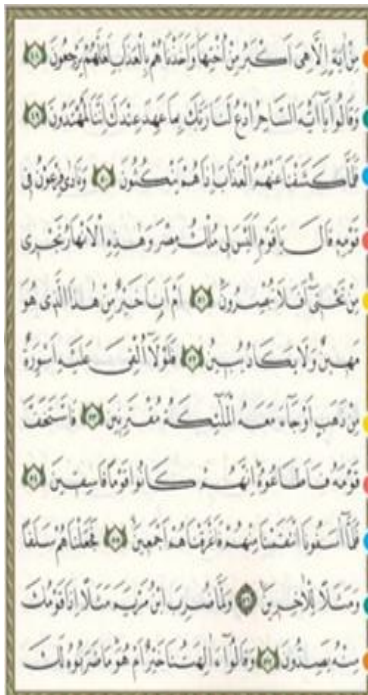 مِنْ اٰيَةٍ اِلَّا هِىَ اَكْبَرُ مِنْ اُخْتِهَا وَاَخَذْنَاهُمْ بِالْعَذَابِ لَعَلَّهُمْ يَرْجِعُونَ ﴿٤٨﴾
وَقَالُوا يَٓا اَيُّهَ السَّاحِرُ ادْعُ لَنَا رَبَّكَ بِمَا عَهِدَ عِنْدَكَ اِنَّنَا لَمُهْتَدُونَ ﴿٤٩﴾
فَلَمَّا كَشَفْنَا عَنْهُمُ الْعَذَابَ اِذَا هُمْ يَنْكُثُونَ ﴿٥٠﴾ وَنَادٰى فِرْعَوْنُ فِى
قَوْمِهِ قَالَ يَا قَوْمِ اَلَيْسَ لِى مُلْكُ مِصْرَ وَهٰذِهِ الْاَنْهَارُ تَجْرِى
مِنْ تَحْتِى اَفَلَا تُبْصِرُونَ ﴿٥١﴾ اَمْ اَنَا خَيْرٌ مِنْ هٰذَا الَّذِى هُوَ
مَهِينٌ وَلَا يَكَادُ يُبِينُ ﴿٥٢﴾ فَلَوْلَٓا اُلْقِىَ عَلَيْهِ اَسْوِرَةٌ
مِنْ ذَهَبٍ اَوْ جَٓاءَ مَعَهُ الْمَلٰٓئِكَةُ مُقْتَرِنِينَ ﴿٥٣﴾ فَاسْتَخَفَّ
قَوْمَهُ فَاَطَاعُوهُ اِنَّهُمْ كَانُوا قَوْمًا فَاسِقِينَ ﴿٥٤﴾
فَلَمَّٓا اٰسَفُونَا انْتَقَمْنَا مِنْهُمْ فَاَغْرَقْنَاهُمْ اَجْمَعِينَ ﴿٥٥﴾ فَجَعَلْنَاهُمْ سَلَفًا
وَمَثَلًا لِلْاٰخِرِينَ ﴿٥٦﴾ وَلَمَّا ضُرِبَ ابْنُ مَرْيَمَ مَثَلًا اِذَا قَوْمُكَ
مِنْهُ يَصِدُّونَ ﴿٥٧﴾ وَقَالُٓوا ءَاٰلِهَتُنَا خَيْرٌ اَمْ هُوَ مَا ضَرَبُوهُ لَكَ